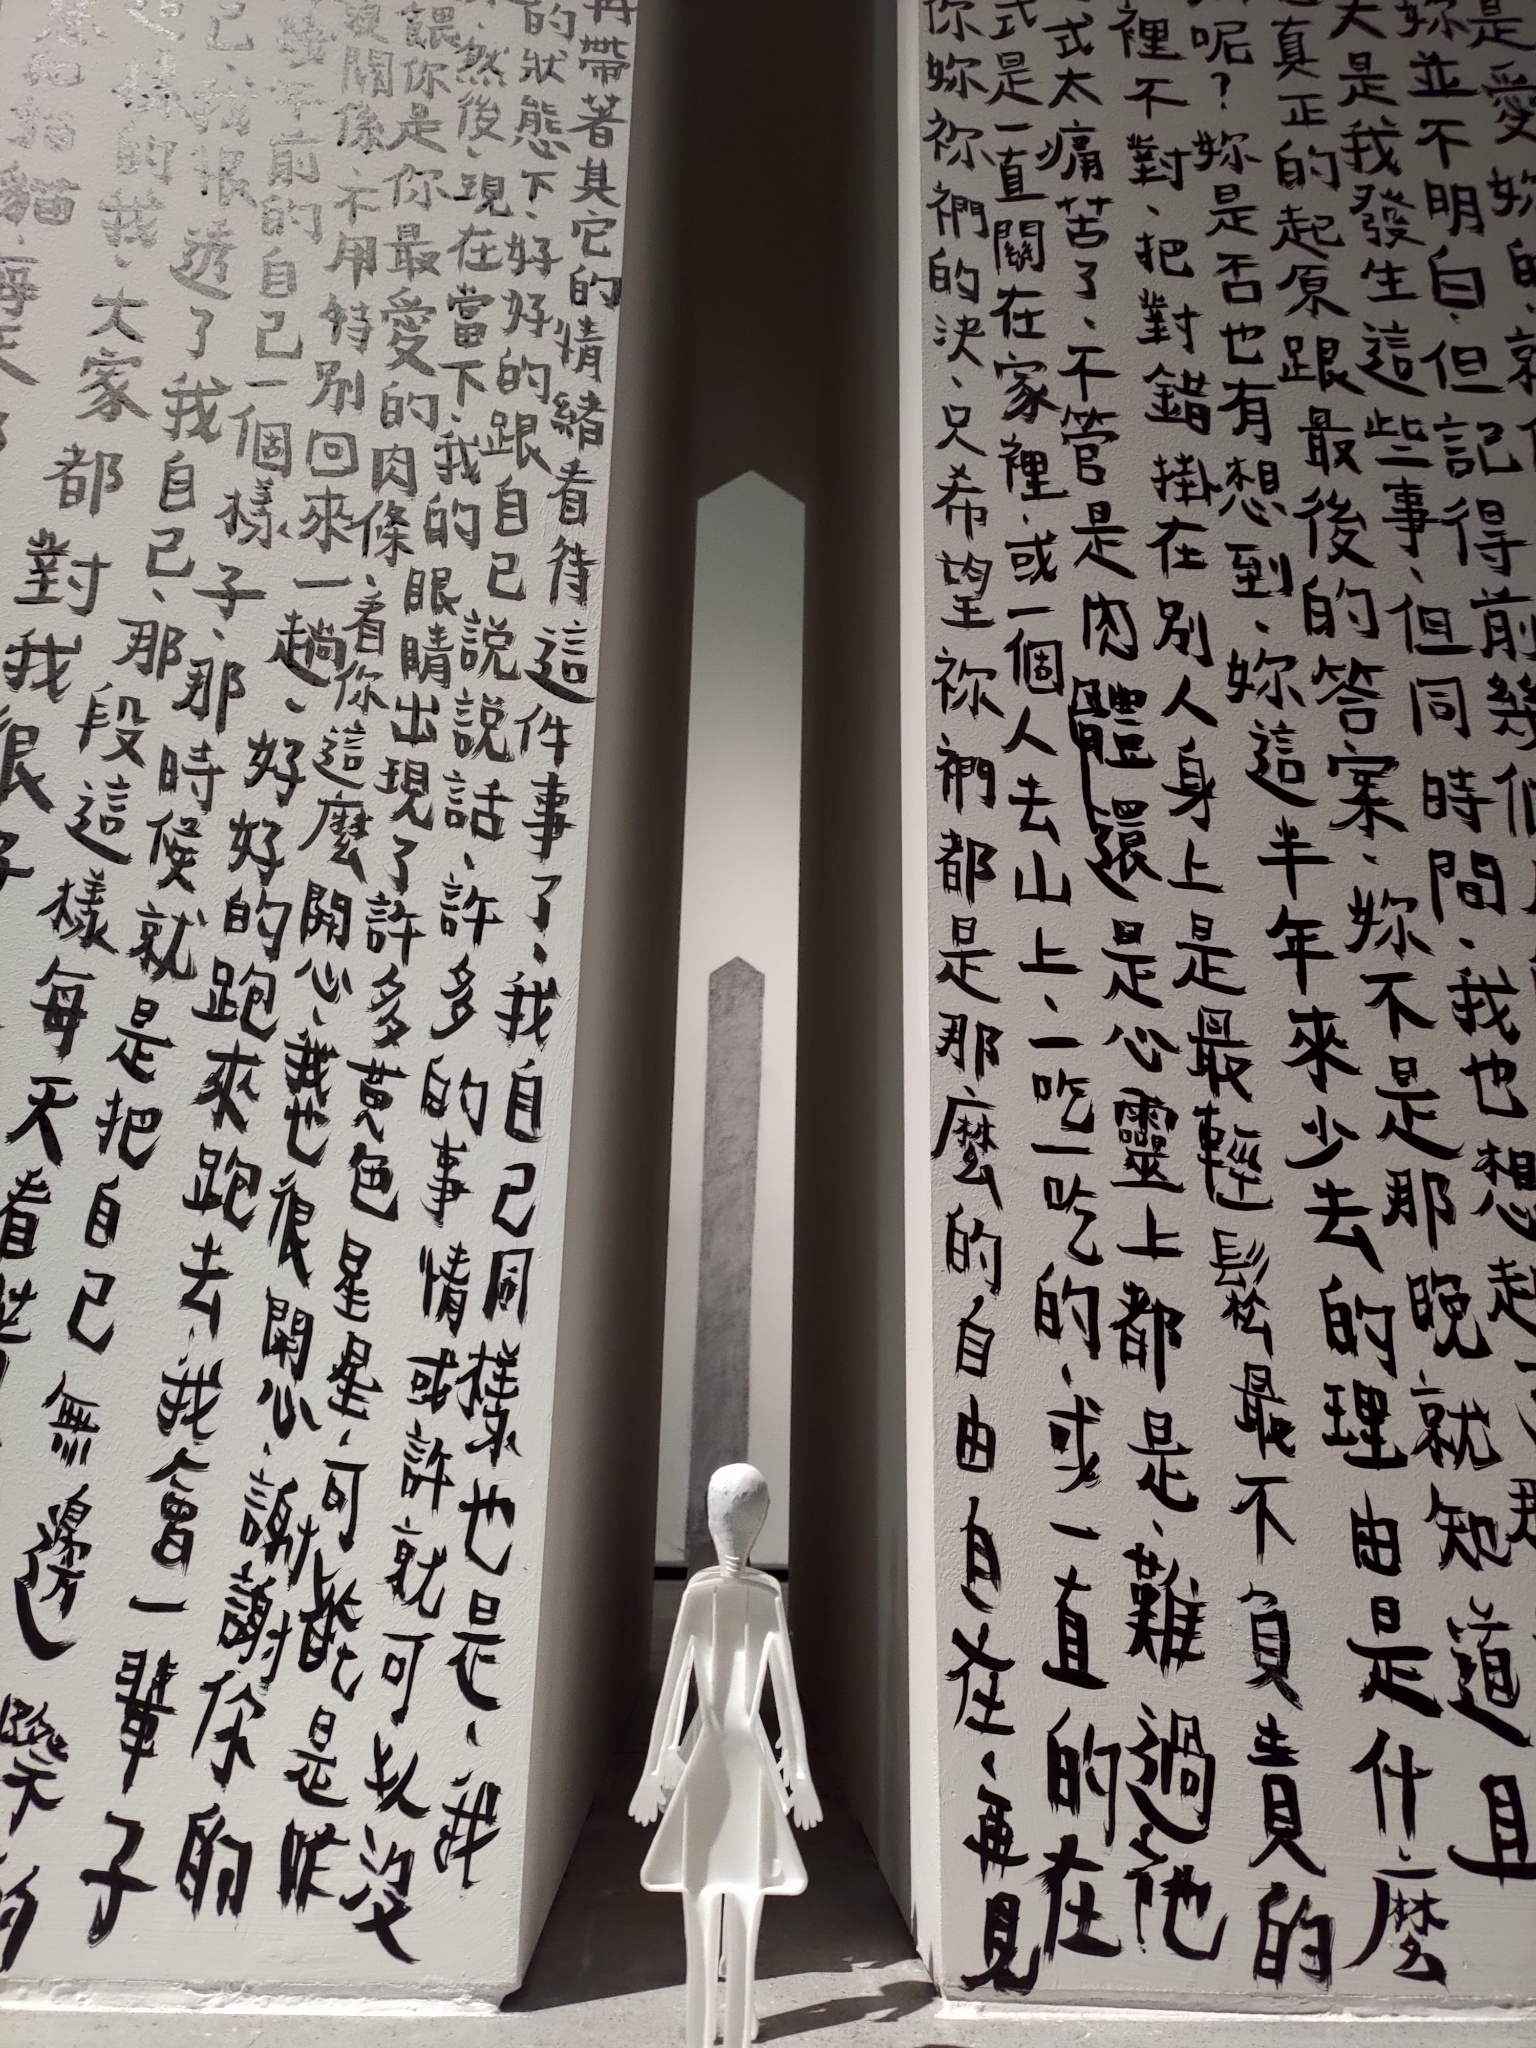 是愛妳的
妳並不明白、但記得前幾個
大是我發生這些事、但同時間、我也想起
真正的起原跟最後的答案、妳不是那晚就知道且
呢？妳是否也有想到、妳這半年來少去的理由是什麼
裡不對、把對錯掛在別人身上是最輕鬆最不負責的
式太痛苦了、不管是肉體還是心靈上都是、難過他
式是一直關在家裡、或一個人去山上、一吃一吃的、或一直的在
你妳祢們的決、只希望祢們都是那麼的自由自在、再見
再帶著其它的情緒看待這件事了、我自己同樣也是、我
的狀態下、好好的跟自己說說話、許多的事情或許就可以沒
然後、現在當下、我的眼睛出現了許多黃色星星、可能是昨
餵你是你最愛的肉條、看你這麼開心、我也很開心、謝謝你的
沒關係、不用特別回來一趟、好好的跑來跑去、我會一輩子
幾年前的自己一個樣子、那時候就是把自己無邊
己、我恨透了我自己、那段這樣每天看
這樣的我、大家都對我很好
貓貓、每天